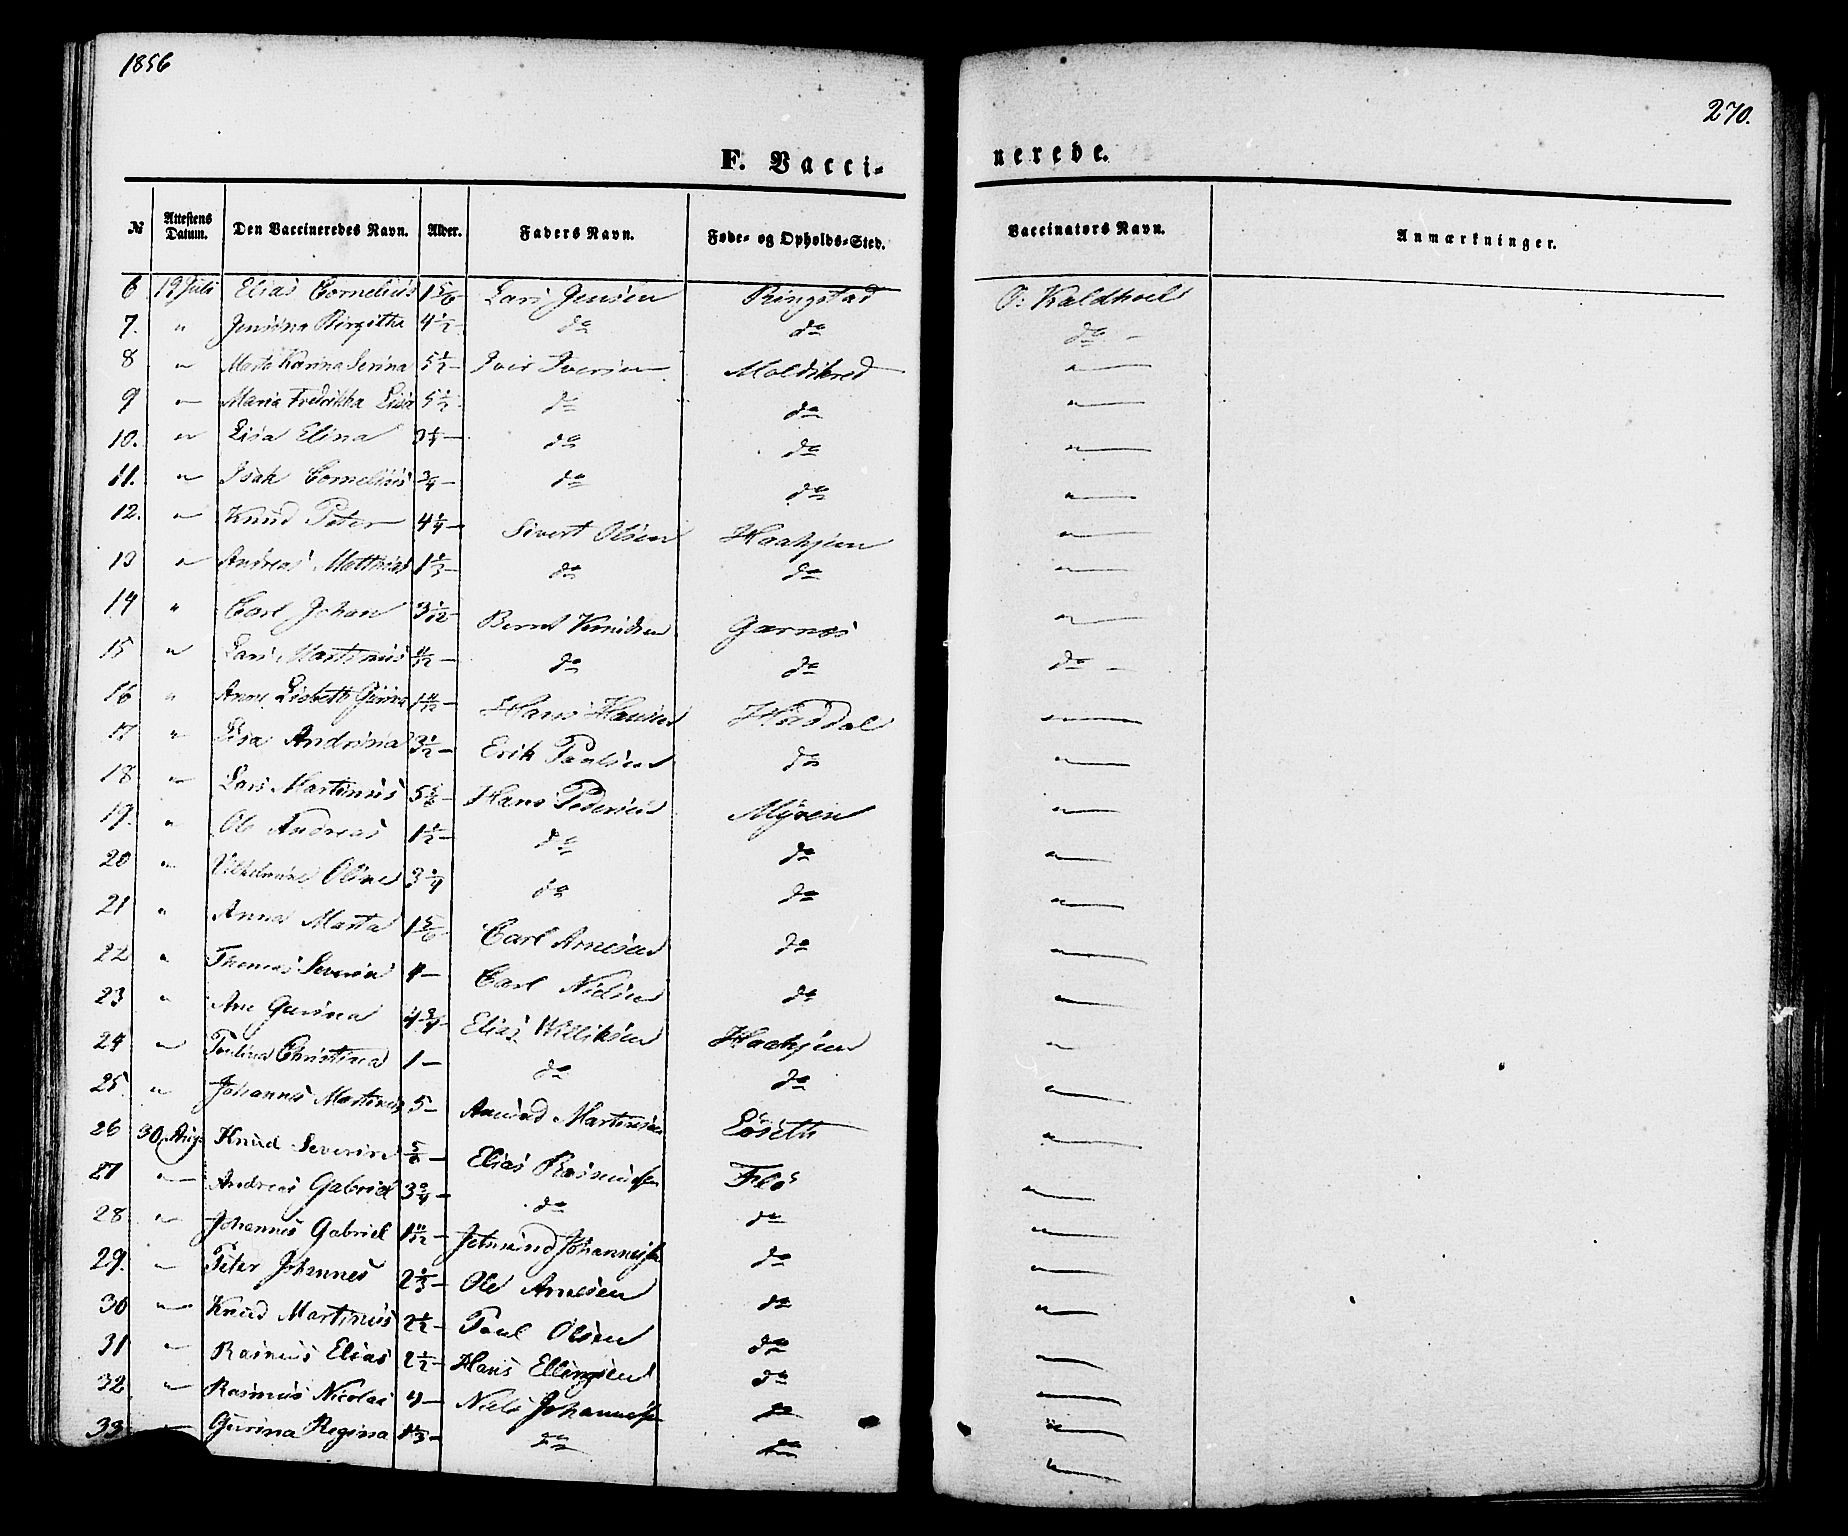 1856
270.
F. Vacci-
nerede.
№ Attestens Datum. Den Vaccineredes Navn. Alder. Faders Navn. Føde- og Opholds-Sted. Vaccinators Navn. Anmærkninger.
6 19 Juli Elias Cornelius 1 5/6 Lars Jensen Ringstad O: Kaldhoel
7. " Jensina Birgitha 4 1/2 do do do -
8 " Marta Karina Serina 5 1/2 Iver Iversen "
9 " Maria Fredrikka Lisa 5 1/2 do do "
10. " Lisa Elina do do "
11. " Isak Cornelius 3/4 do do "
12. " Knud Peter 4 1/4 Sivert Olsen Haahjem "
13 " Andreas Matthias 1 1/3 do do "
14 " Carl Johan 3 1/12 Bernt Knudsen Garnæs "
15 " Lars Martinus 11/12 do do do -
16 " Anne Lisbeth 1 11/12 Hans Hansen Hasdal "
17 " Lisa Andrina 3 1/2 Erik Paulsen do "
18 " Lars Martinus 5 5/6 Hans Pedersen Myren "
19. " Ole Andreas 1 1/2 do do "
20 " Vilhelmine Oline 3 1/4 do do "
21 " Anna Marta 1 5/6 Carl Arnesen do "
22 " Thomas Severin 4 Carl Nielsen do "
23 " Ane Gurina 4 3/4 Elias Williksen Haahjem "
24 " Paulina Christina 1 - do do "
25. " Johannes Martinus 5 - Amund Martinsen Løseth "
26 30 Aug. Knud Severin 5/6 Elias Rasmussen Flø "
27 " Andreas Gabriel 3 3/4 do do "
28 " Johannes Gabriel 1 11/12 Jetmund Johannessen do "
29. " Peter Johannes 2 1/3 Ole Arnesen do "
30 " Knud Martinus 2 1/2 Paul Olsen do "
31 " Rasmus Elias 2 1/2 Hans Ellingsen do "
32 " Rasmus Nicolai 4 - Nils Johannessen do "
33 " Gurina Regina 1 1/3 do do "